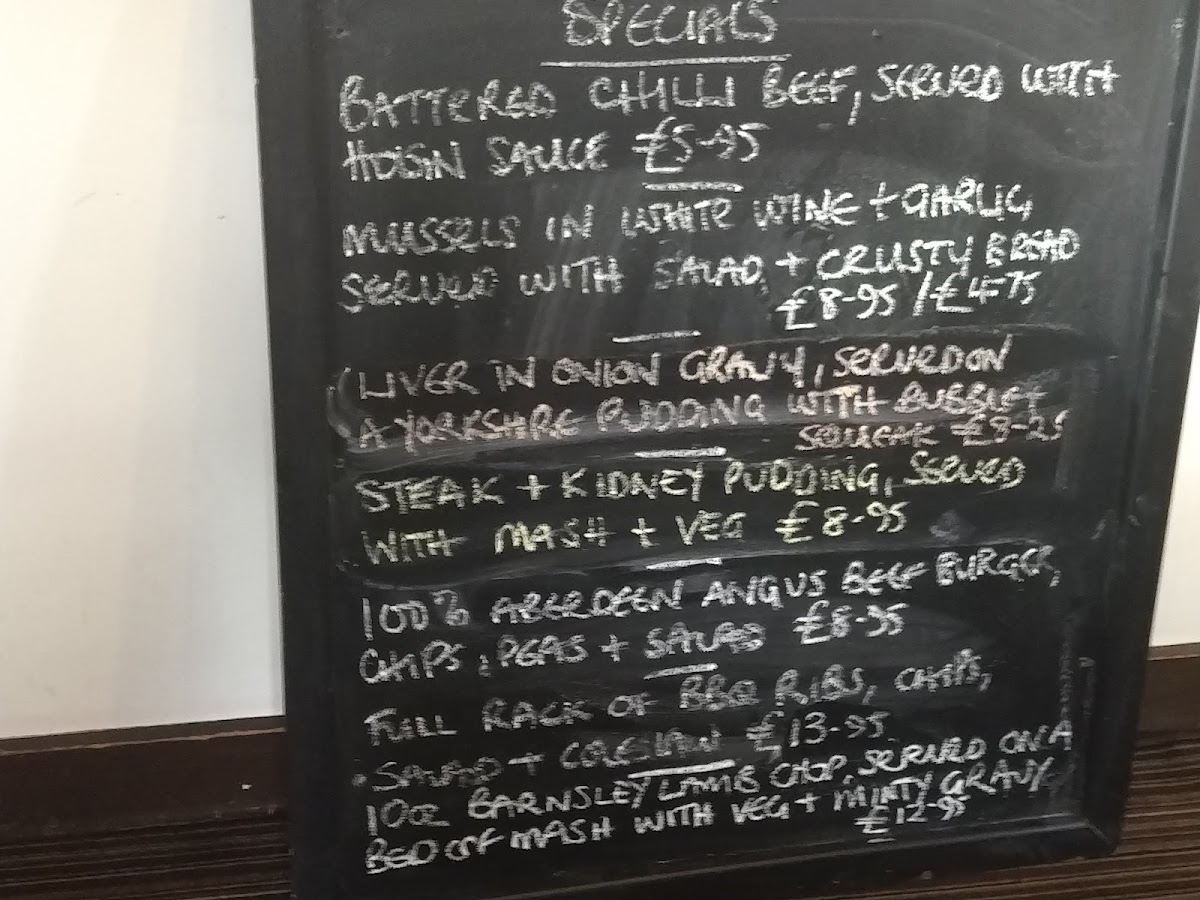 SPECIALS
BATTERED CHILLI BEEF, SERVED WITH
HOISIN SAUCE £5-95
MUSSELS IN WHITE WINE + GARLIC,
SERVED WITH SALAD + CRUSTY BREAD
£8-95 / £4-75
LIVER IN ONION GRAVY, SERVED ON
A YORKSHIRE PUDDING WITH BUBBLE +
SQUEAK £8-25
STEAK + KIDNEY PUDDING, SERVED
WITH MASH + VEG £8-95
100% ABERDEEN ANGUS BEEF BURGER,
CHIPS, PEAS + SALAD £8-95
FULL RACK OF BBQ RIBS, CHIPS,
SALAD + COLESLAW £13-95
10oz BARNSLEY LAMB CHOP, SERVED ON A
BED OF MASH WITH VEG + MINTY GRAVY
£12-95